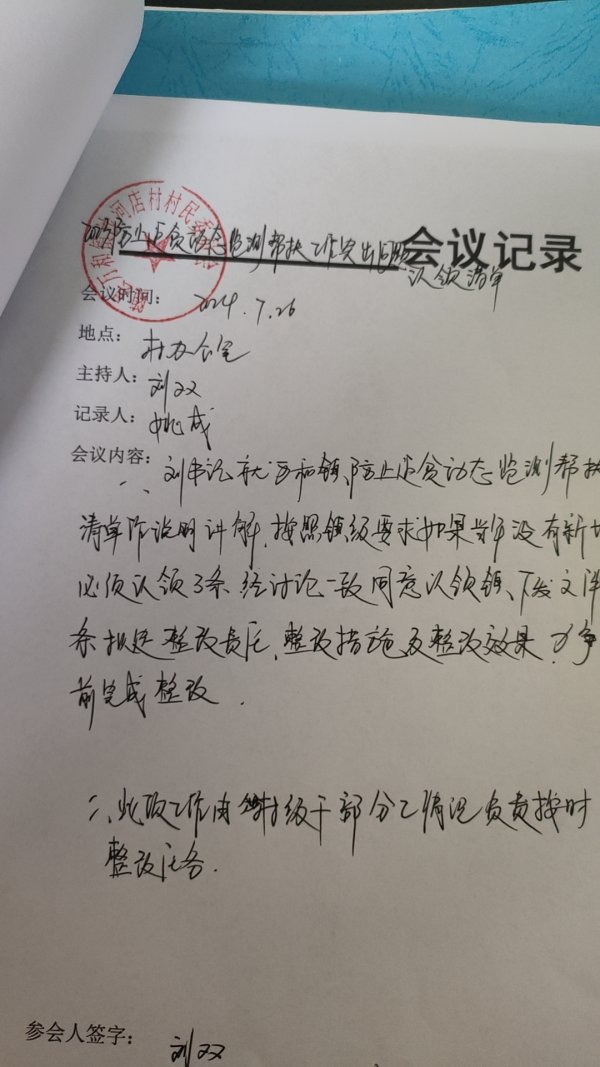 防止返贫动态监测帮扶工作突出问题会议记录
认领清单
会议时间： 2024.7.26
地点： 村办公室
主持人： 刘双
记录人： 姚成
会议内容：
一、刘书记就 镇防止返贫动态监测帮扶
清单作说明讲解，按照镇级要求如果当年没有新增
必须认领3条 经讨论一致同意认领镇下发文件
条拟定整改责任、整改措施及整改效果，力争
前完成整改．
二、此项工作由 村级干部分工情况负责按时
整改任务．
参会人签字： 刘双